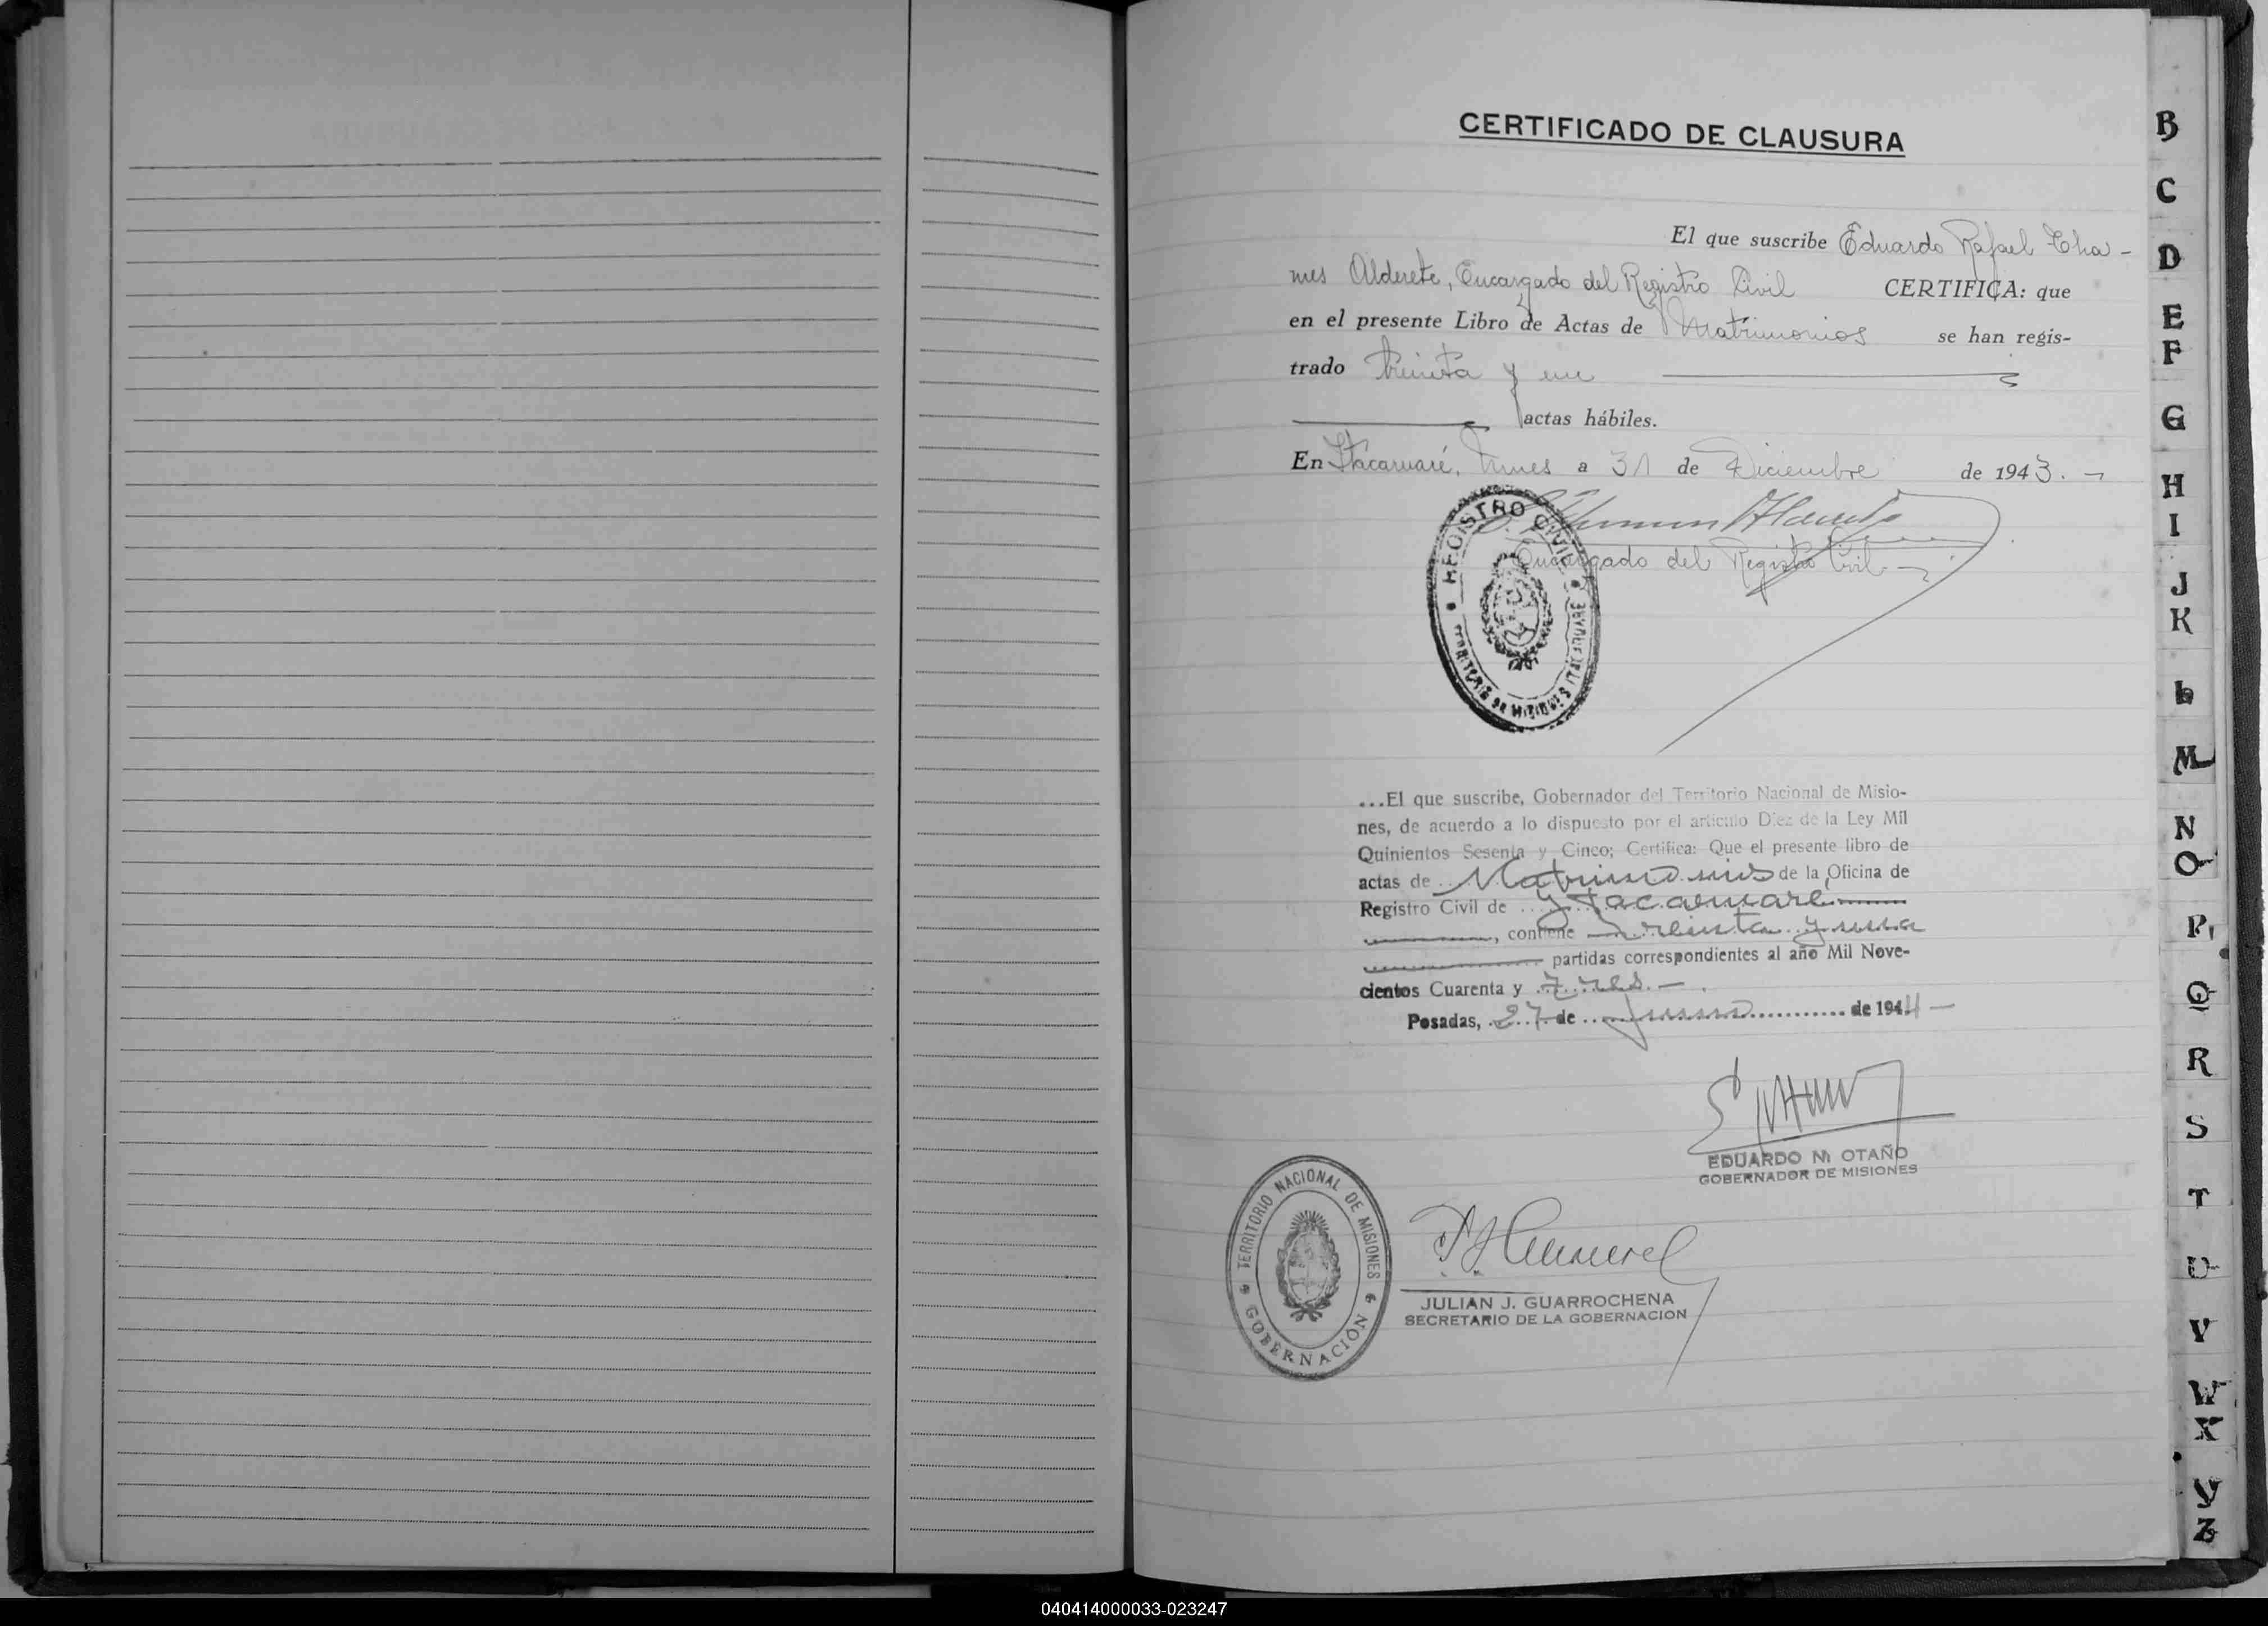 CERTIFICADO DE CLAUSURA
El que suscribe Eduardo Rafael Cha-
mes Alderete, Encargado del Registro Civil CERTIFICA: que
en el presente Libro de Actas de Matrimonios se han regis-
trado treinta y un
actas hábiles.
En Itacaruaré, lunes a 31 de Diciembre de 1943.
Encargado del Registro Civil
REGISTRO CIVIL
TERRITORIO DE MISIONES ITACARUARE
...El que suscribe, Gobernador del Territorio Nacional de Misio-
nes, de acuerdo a lo dispuesto por el artículo Diez de la Ley Mil
Quinientos Sesenta y Cinco; Certifica: Que el presente libro de
actas de Matrimonios de la Oficina de
Registro Civil de Ytacaruaré
, contiene Treinta y una
partidas correspondientes al año Mil Nove-
cientos Cuarenta y Tres.
Posadas, 27 de de 1944
EDUARDO M. OTAÑO
GOBERNADOR DE MISIONES
TERRITORIO NACIONAL DE MISIONES
GOBERNACIÓN
JULIAN J. GUARROCHENA
SECRETARIO DE LA GOBERNACION
B
C
D
E
F
G
H
I
J
K
L
M
N
O
P
Q
R
S
T
U
V
W
X
Y
Z
040414000033-023247